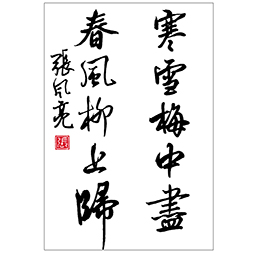 寒雪梅中盡
春風柳上歸
張風亮